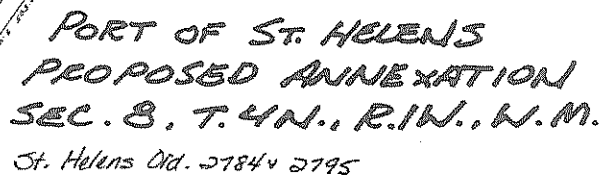 PORT OF ST. HELENS
PROPOSED ANNEXATION
SEC. 8, T. 4N., R. 1W., W. M.
St. Helens Ord. 2784 & 2795